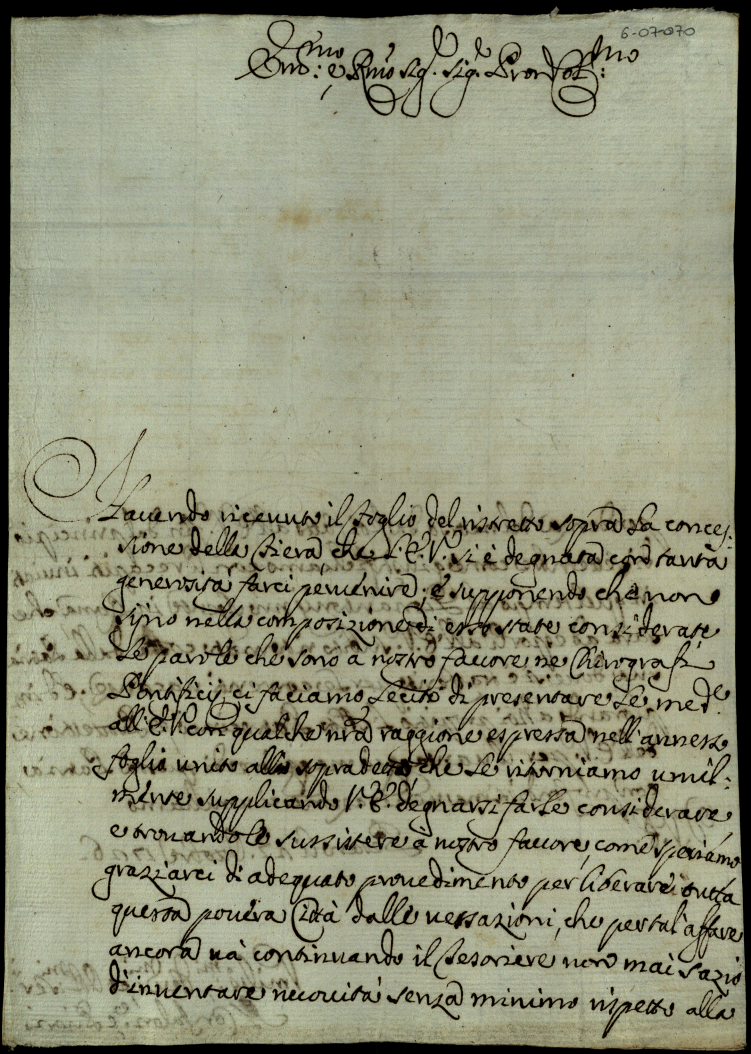 6-07-070
Emo: e Rmo Sig.r Sig.r Pron Colmo:
Hauendo riceuuto il foglio del ristretto sopra la conces:
sione della Fiera, che l'E. V. si è degnata con tanta
generosità farci peruenire, e supponendo che non
sijno nella composizione di esso state considerate
le parole che sono à nostro fauore ne Chirografi
Pontificij ci faciamo lecito di presentare le mede
all'E. V. con qualche nra raggione espressa nell'annesso
foglio unito allo sopradetto che le ritorniamo umil:
mente supplicando V. E. degnarsi farle considerare
e trouandole sussistere à nostro fauore, come speriamo
graziarci di adequato prouedimento per liberare tutta
questa pouera Città dalle uessazioni, che per tal'affare
ancora uà continuando il Tesoriere non mai sazio
d'inuentare nouità senza minimo rispetto alla